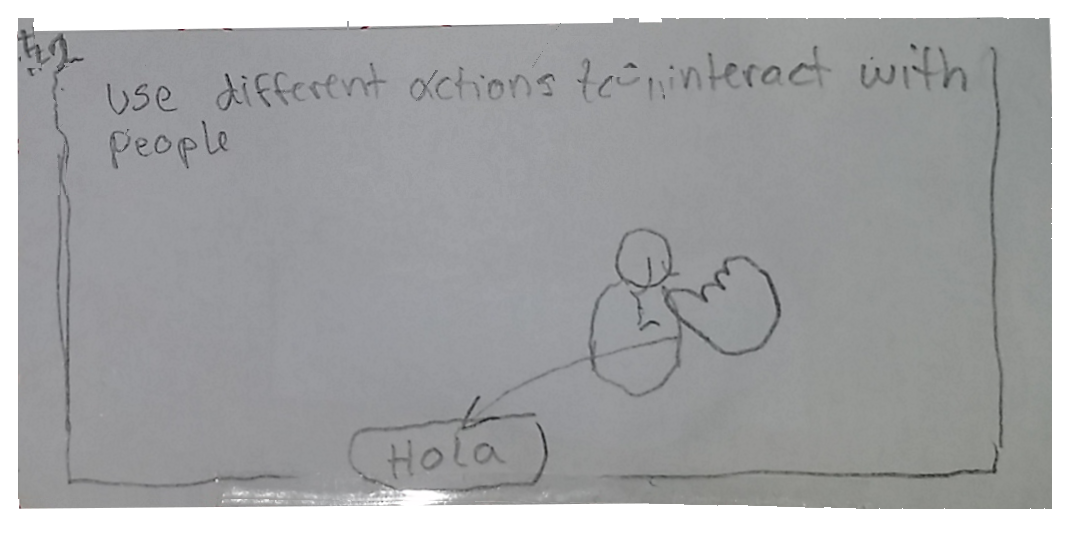 use different actions to interact with
people
Hola